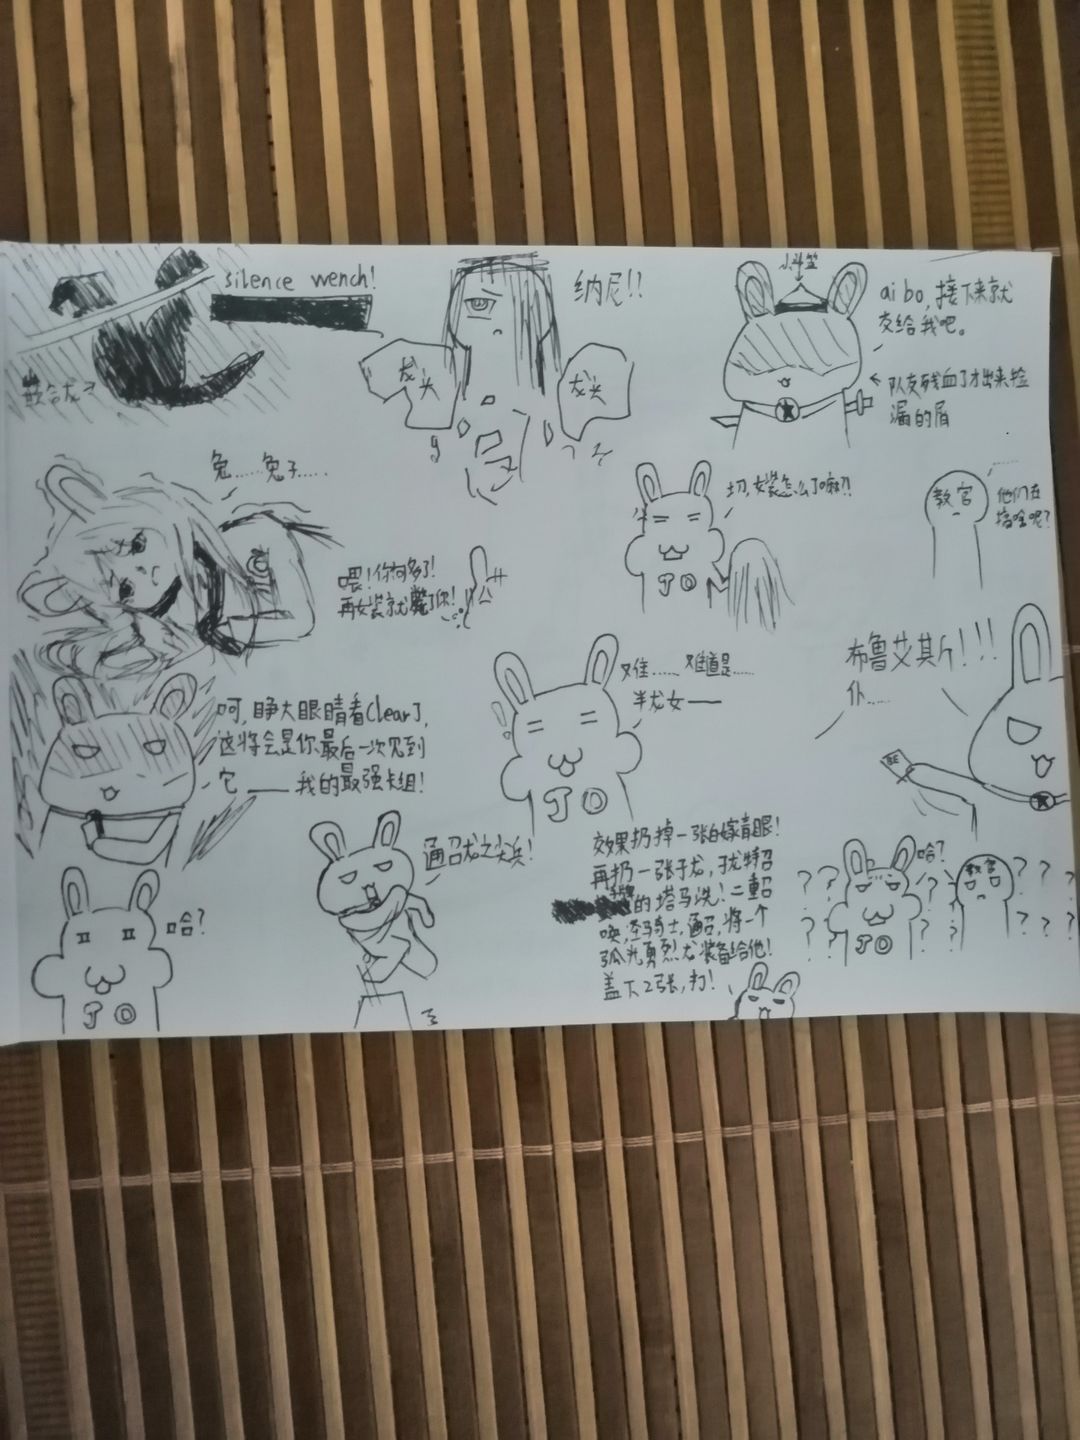 silence wench!
纳尼!!
龙头
龙头
小斗笠
aibo,接下来就
交给我吧。
←队友残血了才出来捡
漏的屑
兔……兔子……
喂!你初够了!
再女装就鲨了你!
切,女装怎么了嘛?!
JO
教官
他们在
搞啥呢?
呵,睁大眼睛看clear了,
这将会是你最后一次见到
它——我的最强卡组!
难……难道是……
半龙女——
JO
布鲁艾其斤!!!
仆……
BE
哈?
JO
通召龙之尖兵!
效果扔掉一张白嫁青眼!
再扔一张于龙,于龙特召
手牌的塔马洗!二重召
唤,圣骑士,通召,将一个
弧光勇烈龙装备给他!
盖下2张,打!
哈?
教官
JO
? ? ? ?